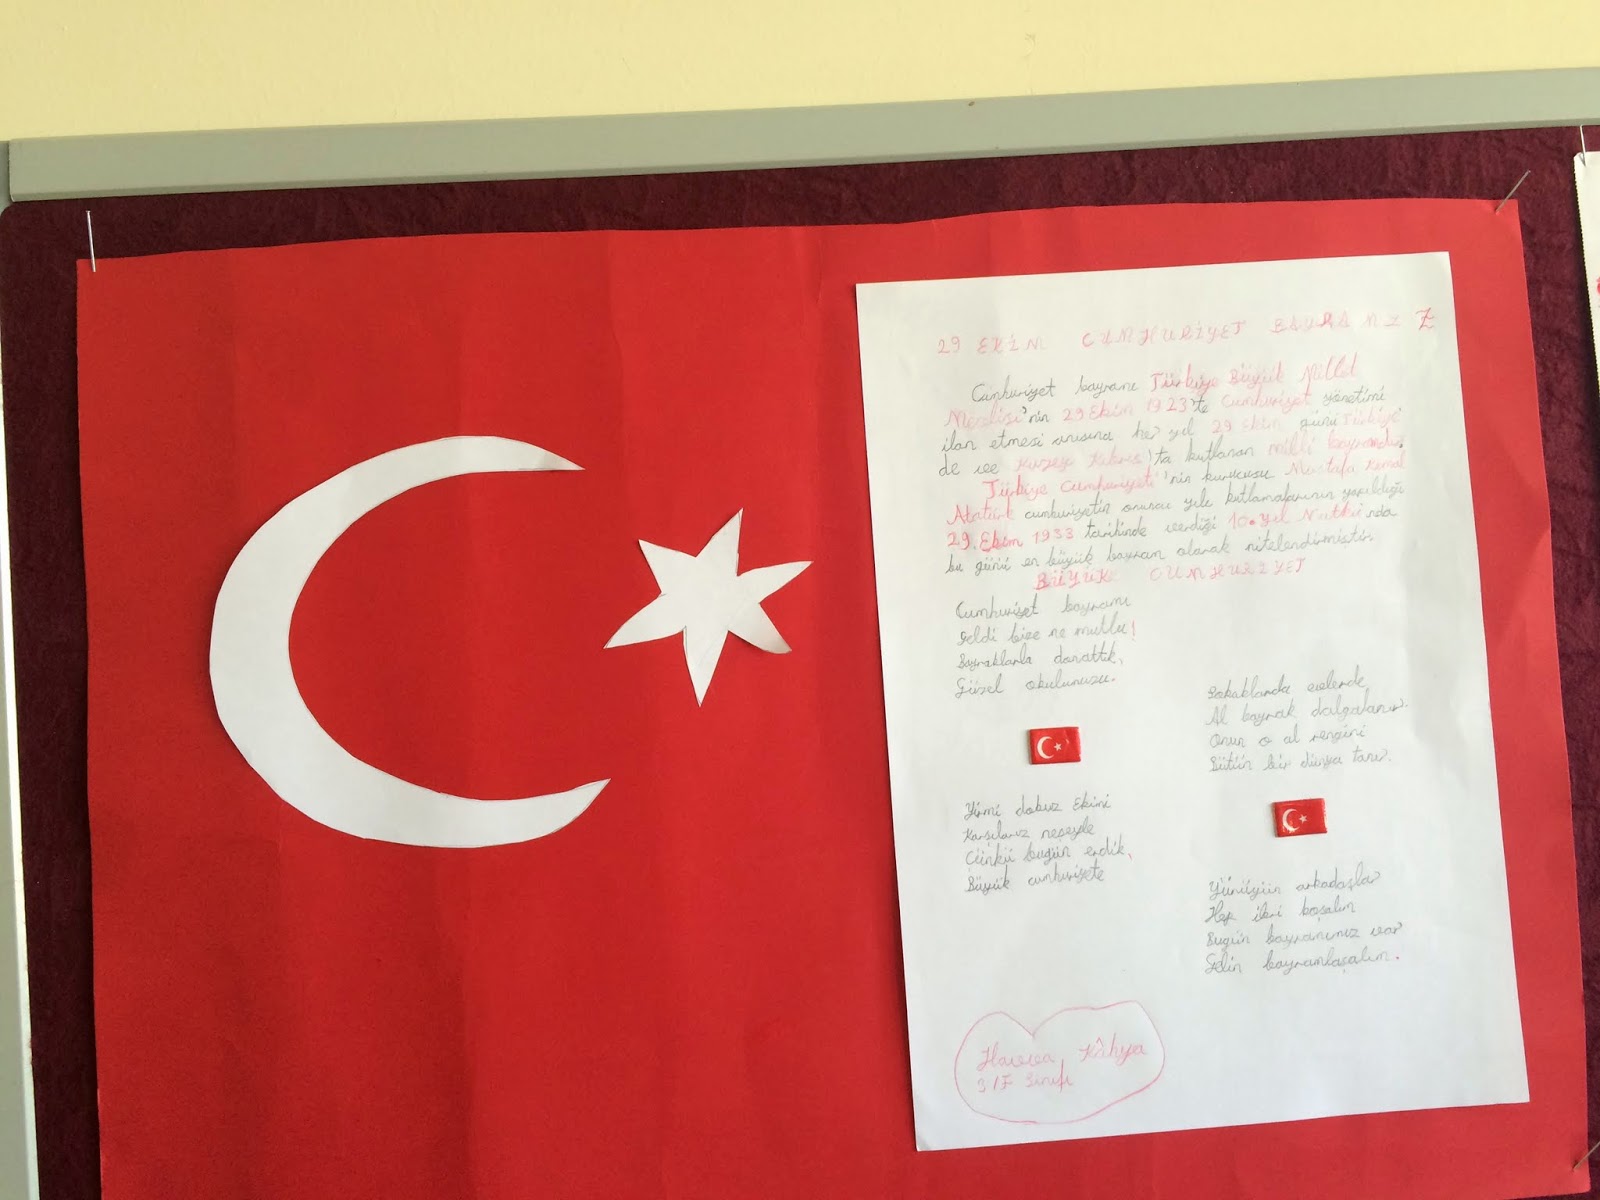 29 EKİM CUMHURİYET BAYRAMI
Cumhuriyet bayramı Türkiye Büyük Millet
Meclisi'nin 29 Ekim 1923'te Cumhuriyet yönetimi
ilan etmesi anısına her yıl 29 ekim günü Türkiye'
de ve Kuzey Kıbrıs'ta kutlanan milli bayramdır.
Türkiye Cumhuriyeti'nin kurucusu Mustafa Kemal
Atatürk cumhuriyetin onuncu yılı kutlamalarının yapıldığı
29 Ekim 1933 tarihinde verdiği 10. Yıl Nutku'nda
bu günü en büyük bayram olarak nitelendirmiştir.
BÜYÜK CUMHURİYET
Cumhuriyet bayramı
Geldi bize ne mutlu!
Bayraklarla donattık,
Güzel okulumuzu.
Yirmi dokuz Ekimi
Karşılarız neşeyle
Çünkü bugün erdik,
Büyük cumhuriyete
Sokaklarda evlerde
Al bayrak dalgalanır.
Onun o al rengini
Bütün bir dünya tanır.
Yürüyün arkadaşlar
Hep ileri koşalım
Bugün bayramımız var
Gelin bayramlaşalım.
Havva Kâhya
3/F Sınıfı